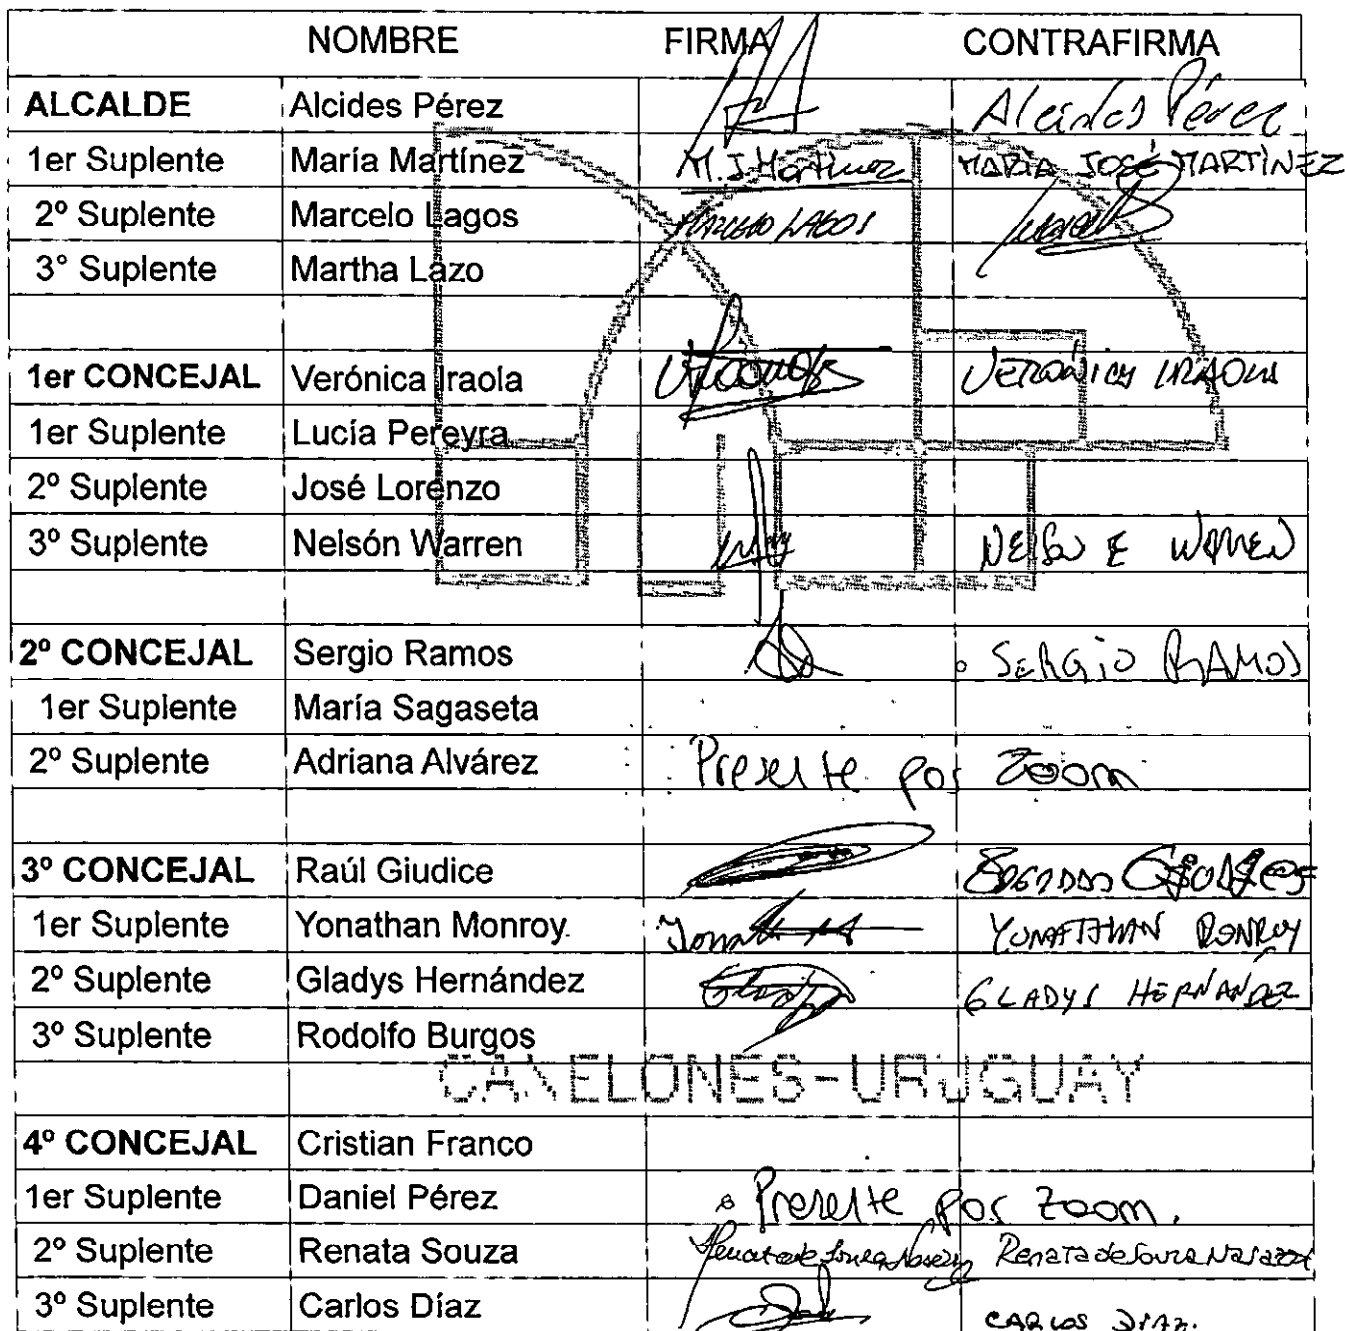 NOMBRE FIRMA CONTRAFIRMA
ALCALDE Alcides Pérez Alcides Pérez
1er Suplente María Martínez M.J. Martínez MARÍA JOSÉ MARTÍNEZ
2º Suplente Marcelo Lagos MARCELO LAGOS
3° Suplente Martha Lazo
1er CONCEJAL Verónica Iraola VERÓNICA IRAOLA
1er Suplente Lucía Pereyra
2º Suplente José Lorenzo
3º Suplente Nelsón Warren NELSON E WARREN
2º CONCEJAL Sergio Ramos SERGIO RAMOS
1er Suplente María Sagaseta
2º Suplente Adriana Alvárez Presente por Zoom
3º CONCEJAL Raúl Giudice
1er Suplente Yonathan Monroy. YONATHAN MONROY
2º Suplente Gladys Hernández Gladys GLADYS HERNANDEZ
3º Suplente Rodolfo Burgos
CANELONES-URUGUAY
4º CONCEJAL Cristian Franco
1er Suplente Daniel Pérez Presente por Zoom.
2º Suplente Renata Souza Renata de Souza
3º Suplente Carlos Díaz CARLOS DIAZ.